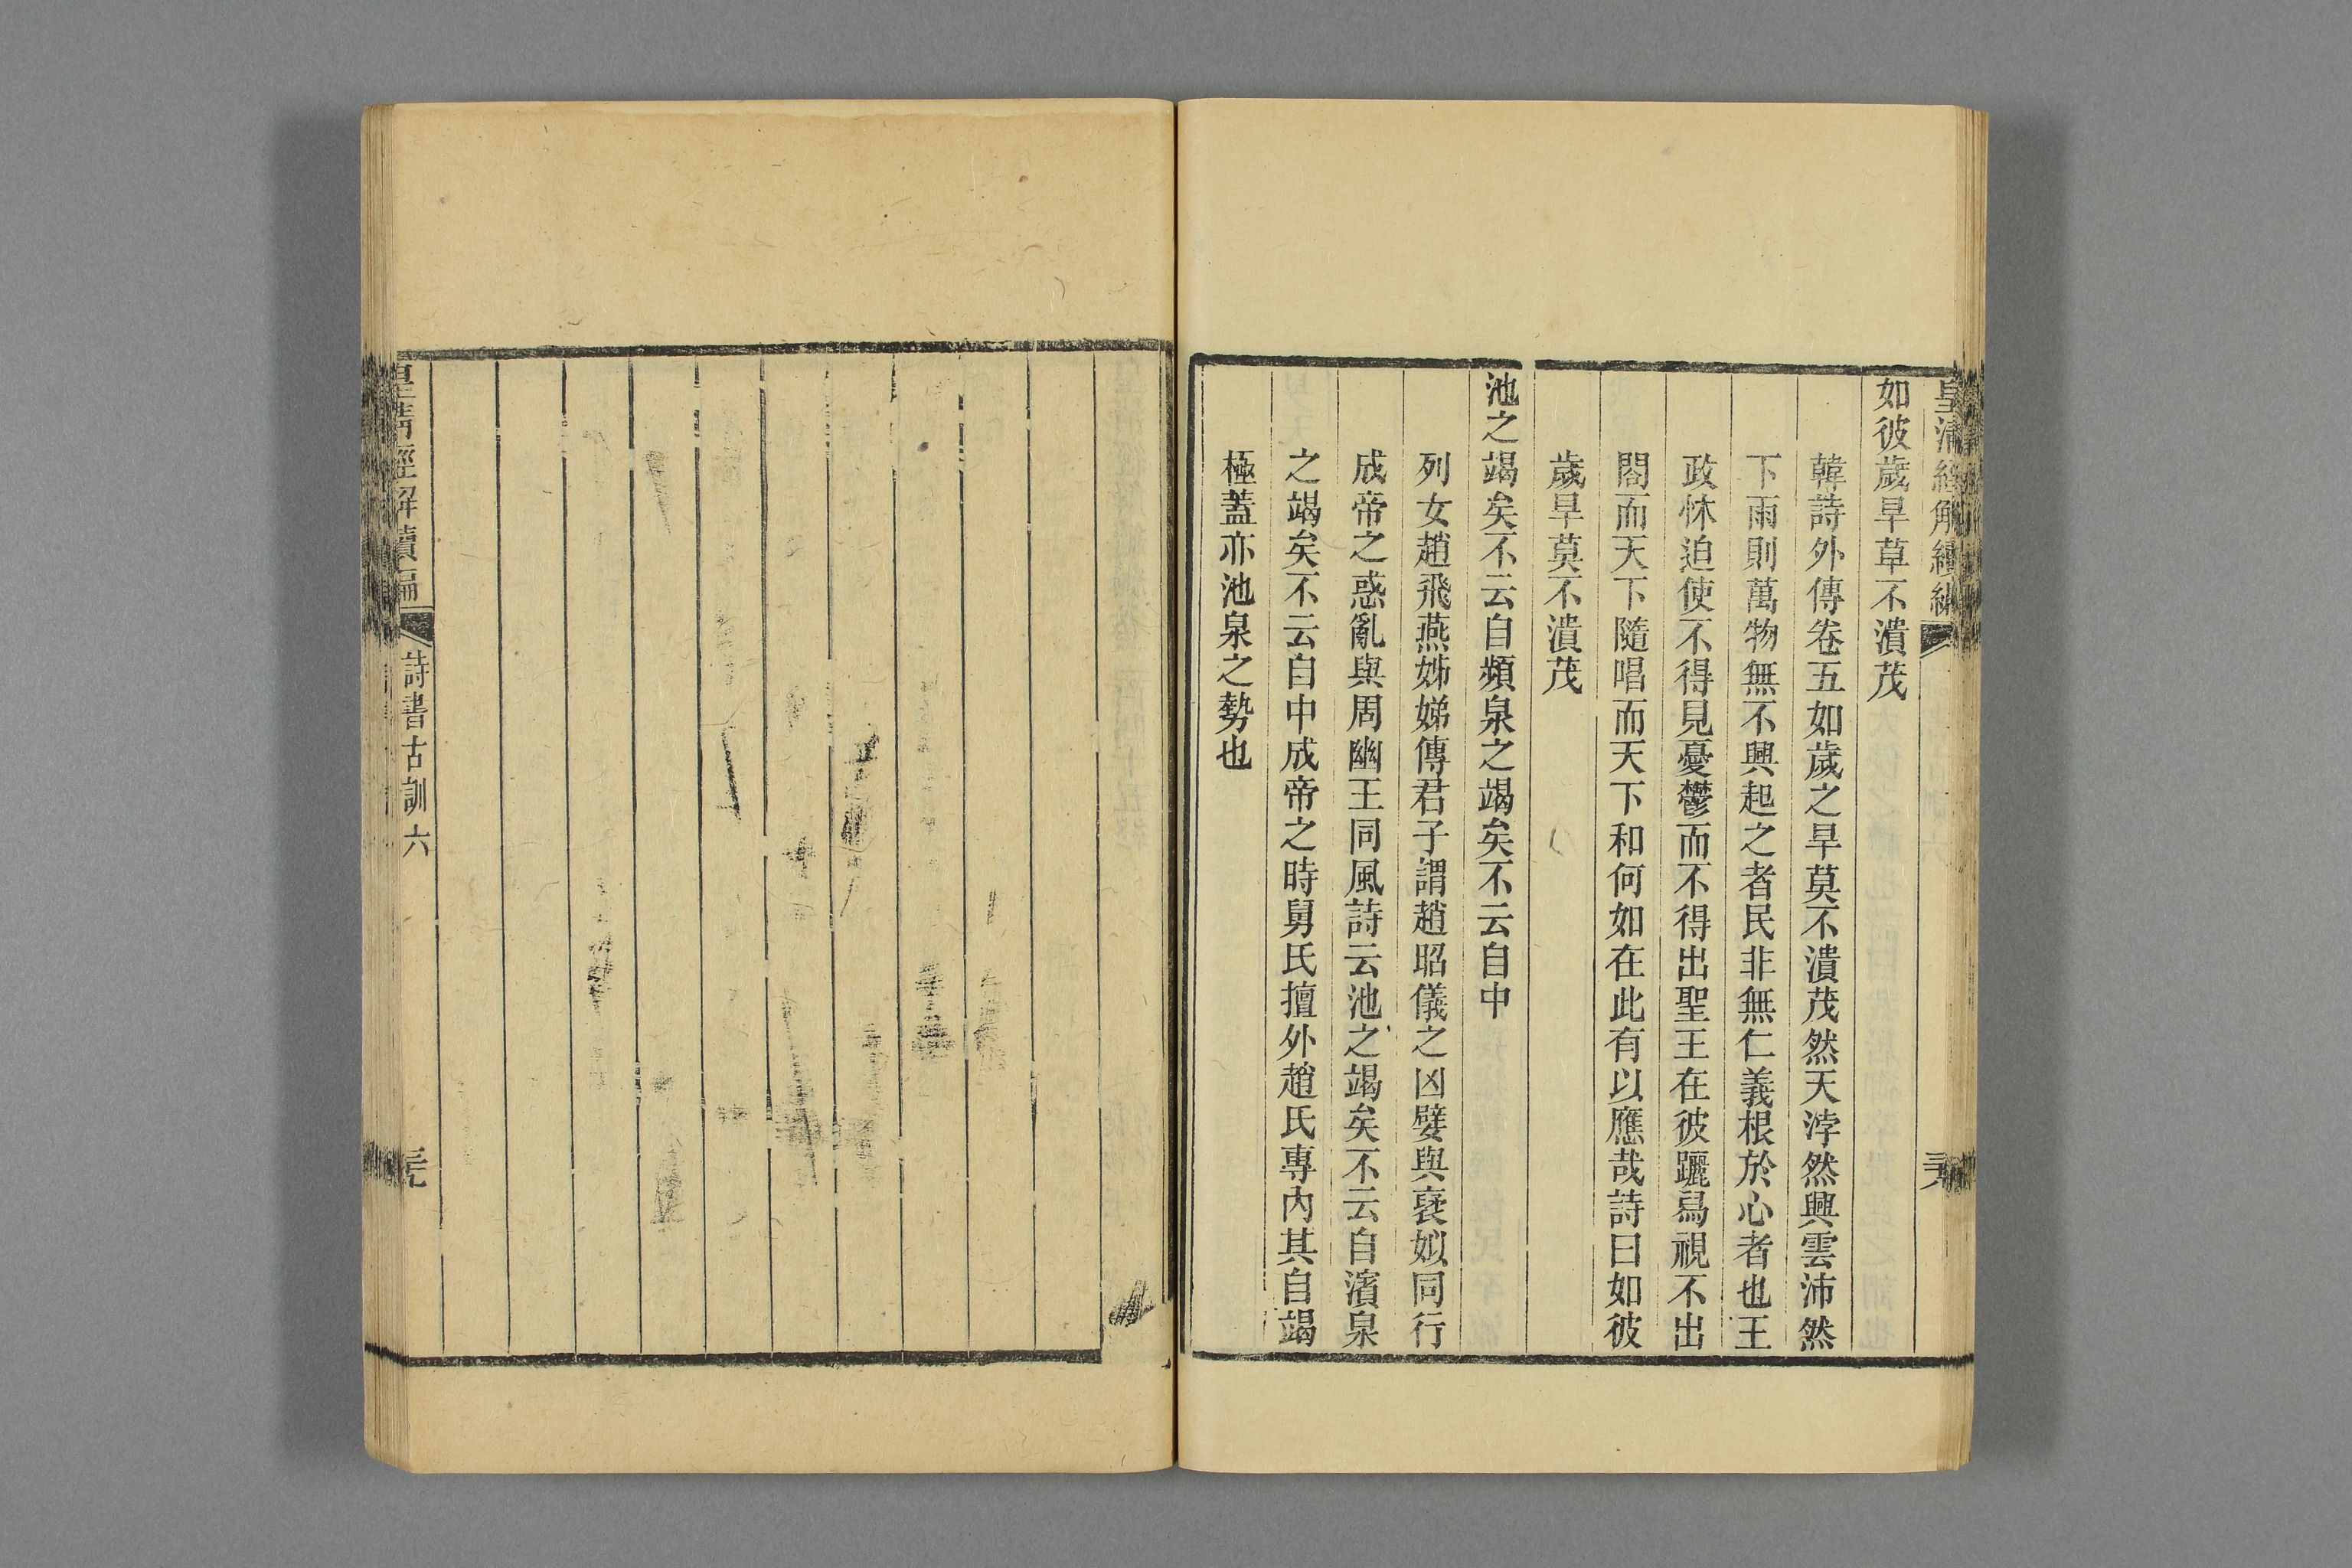 皇清經解續編
如彼歲旱草不潰茂
韓詩外傳卷五如歲之旱莫不潰茂然天浡然興雲沛然
下雨則萬物無不興起之者民非無仁義根於心者也王
政怵迫使不得見憂鬱而不得出聖王在彼躧舄視不出
閤而天下隨唱而天下和何如在此有以應哉詩曰如彼
歲旱莫不潰茂
池之竭矣不云自頻泉之竭矣不云自中
列女趙飛燕姊娣傳君子謂趙昭儀之凶嬖與襃姒同行
成帝之惑亂與周幽王同風詩云池之竭矣不云自濱泉
之竭矣不云自中成帝之時舅氏擅外趙氏專內其自竭
極蓋亦池泉之勢也
皇清經解續編
詩書古訓六